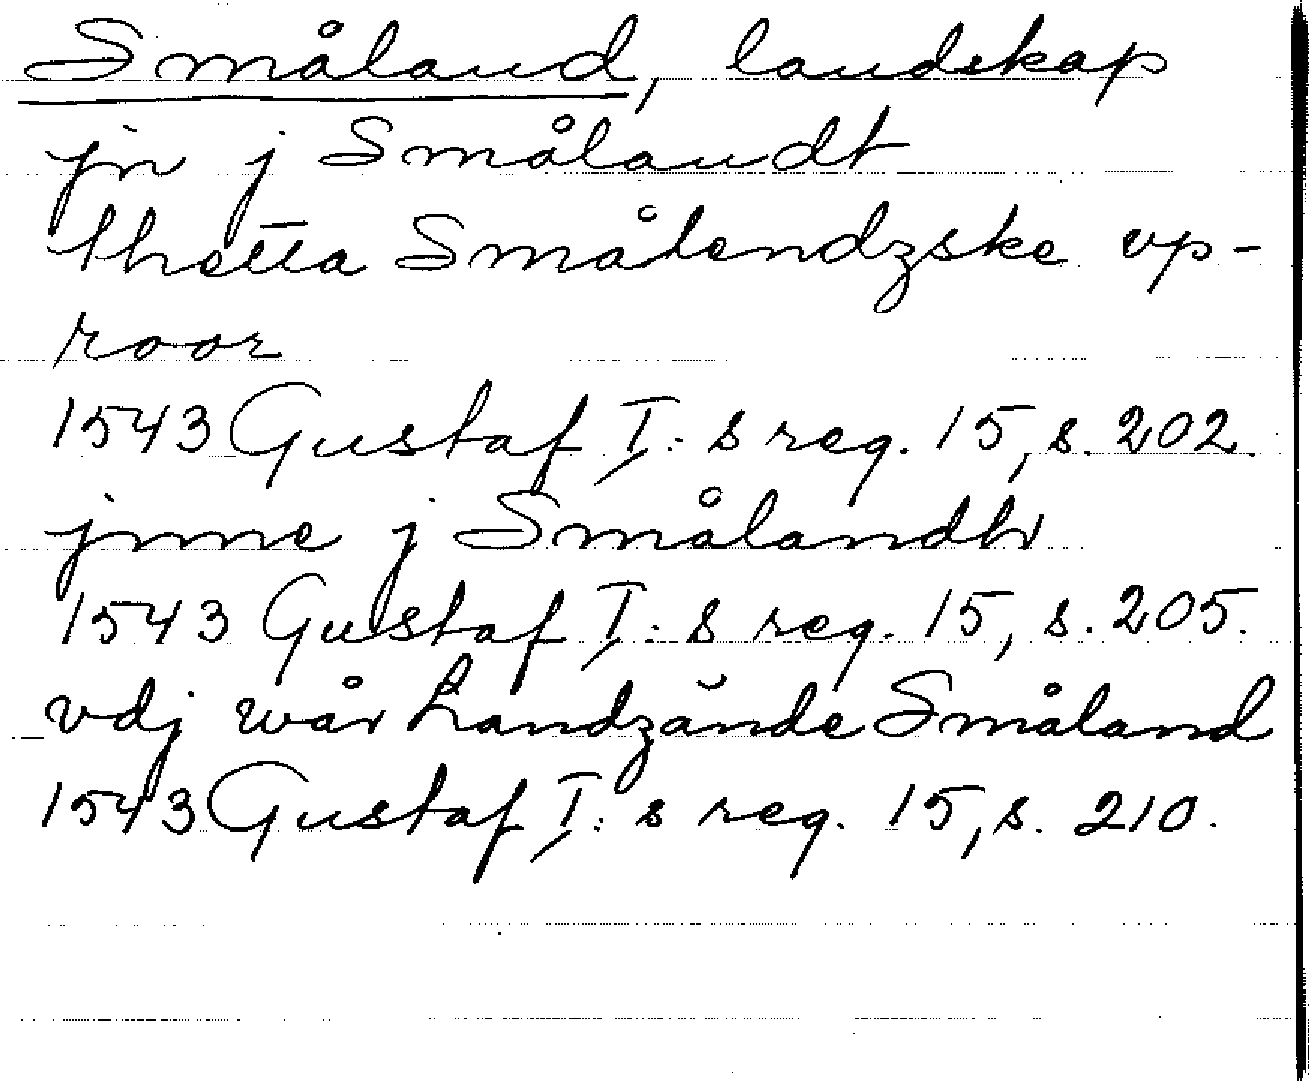 Småland, landskap
jn j Smålandt
thetta Smålendzske vp-
roor
1543 Gustaf I:s reg. 15, s. 202.
jnne j Smålandh
1543 Gustaf I:s reg. 15, s. 205.
vdj wår handzände Småland
1543 Gustaf I:s reg. 15, s. 210.